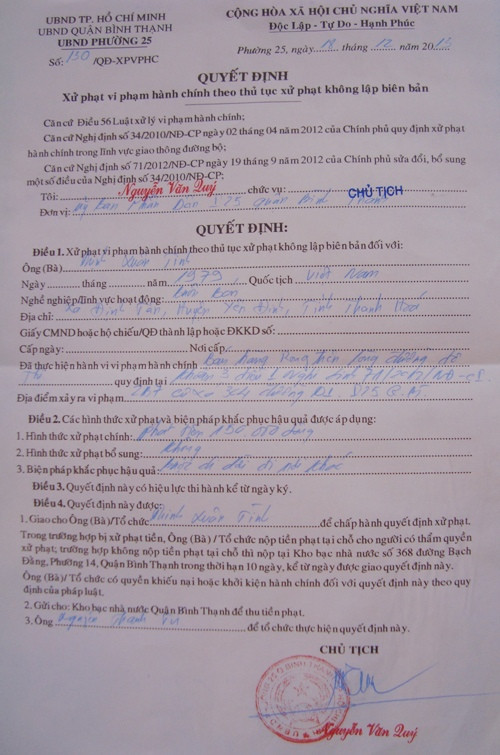 UBND TP. HỒ CHÍ MINH
UBND QUẬN BÌNH THẠNH
UBND PHƯỜNG 25
Số: 130/QĐ-XPVPHC
CỘNG HÒA XÃ HỘI CHỦ NGHĨA VIỆT NAM
Độc Lập - Tự Do - Hạnh Phúc
Phường 25, ngày 18 tháng 12 năm 2012
QUYẾT ĐỊNH
Xử phạt vi phạm hành chính theo thủ tục xử phạt không lập biên bản
Căn cứ Điều 56 Luật xử lý vi phạm hành chính;
Căn cứ Nghị định số 34/2010/NĐ-CP ngày 02 tháng 04 năm 2012 của Chính phủ quy định xử phạt
hành chính trong lĩnh vực giao thông đường bộ;
Căn cứ Nghị định số 71/2012/NĐ-CP ngày 19 tháng 9 năm 2012 của Chính phủ sửa đổi, bổ sung
một số điều của Nghị định số 34/2010/NĐ-CP;
Tôi: Nguyễn Văn Quý chức vụ: CHỦ TỊCH
Đơn vị: Ủy ban Nhân Dân P25 Quận Bình Thạnh
QUYẾT ĐỊNH:
Điều 1. Xử phạt vi phạm hành chính theo thủ tục xử phạt không lập biên bản đối với:
Ông (Bà) Xuân Tình
Ngày tháng năm 1979 Quốc tịch Việt Nam
Nghề nghiệp/lĩnh vực hoạt động: Buôn Bán
Địa chỉ: Xã Định Tân, Huyện Yên Định, Tỉnh Thanh Hoá
Giấy CMND hoặc hộ chiếu/QĐ thành lập hoặc ĐKKD số:
Cấp ngày: Nơi cấp:
Đã thực hiện hành vi vi phạm hành chính: Bán hàng lòng đường đô
thị quy định tại khoản 3 điều 1 nghị định 71/2012/NĐ-CP
Địa điểm xảy ra vi phạm D1, P25, Q.BT
Điều 2. Các hình thức xử phạt và biện pháp khắc phục hậu quả được áp dụng:
1. Hình thức xử phạt chính: phạt tiền 150.000 đồng
2. Hình thức xử phạt bổ sung: không
3. Biện pháp khắc phục hậu quả: di dời đi nơi khác
Điều 3. Quyết định này có hiệu lực thi hành kể từ ngày ký.
Điều 4. Quyết định này được:
1. Giao cho Ông (Bà)/Tổ chức Xuân Tình để chấp hành quyết định xử phạt.
Trong trường hợp bị xử phạt tiền, Ông (Bà) / Tổ chức nộp tiền phạt tại chỗ cho người có thẩm quyền
xử phạt; trường hợp không nộp tiền phạt tại chỗ thì nộp tại Kho bạc nhà nước số 368 đường Bạch
Đằng, Phường 14, Quận Bình Thạnh trong thời hạn 10 ngày, kể từ ngày được giao quyết định này.
Ông (Bà)/ Tổ chức có quyền khiếu nại hoặc khởi kiện hành chính đối với quyết định này theo quy
định của pháp luật.
2. Gửi cho: Kho bạc nhà nước Quận Bình Thạnh để thu tiền phạt.
3. Ông Nguyễn Thanh để tổ chức thực hiện quyết định này.
CHỦ TỊCH
Nguyễn Văn Quý